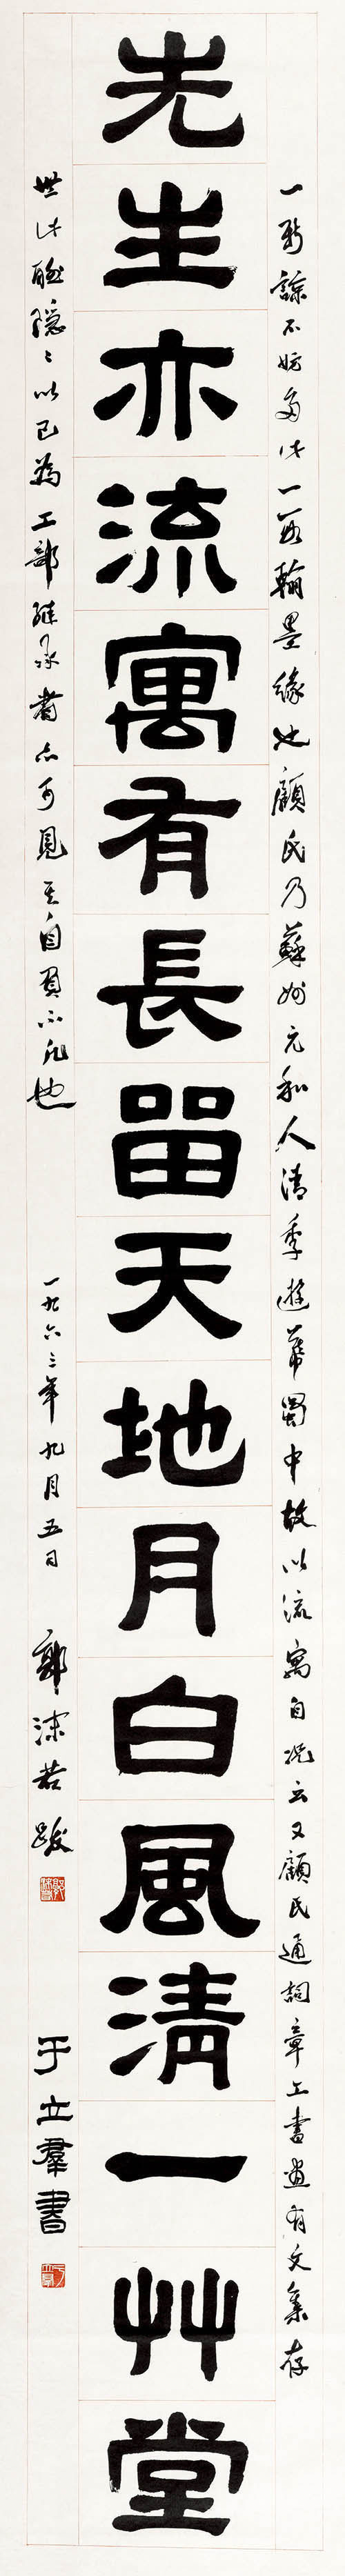 一新諒不妨多此一段翰墨緣也顧氏乃蘇州元和人清季遊幕蜀中故以流寓自況云又顧氏通詞章工書畫有文集存
先生亦流寓有長留天地月白風清一艸堂
世此聯隱々以己為工部繼承者亦可見其自負不凡也 一九六三年九月五日 郭沫若跋 于立羣書